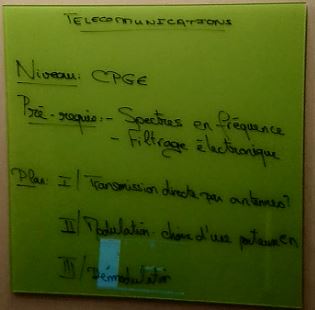 TELECOMMUNICATIONS
Niveau: CPGE
Pré-requis: - Spectres en fréquence
- Filtrage électronique
Plan: I/ Transmission directe par antennes?
II/ Modulation: choix d'une porteuse
III/ Démodulation